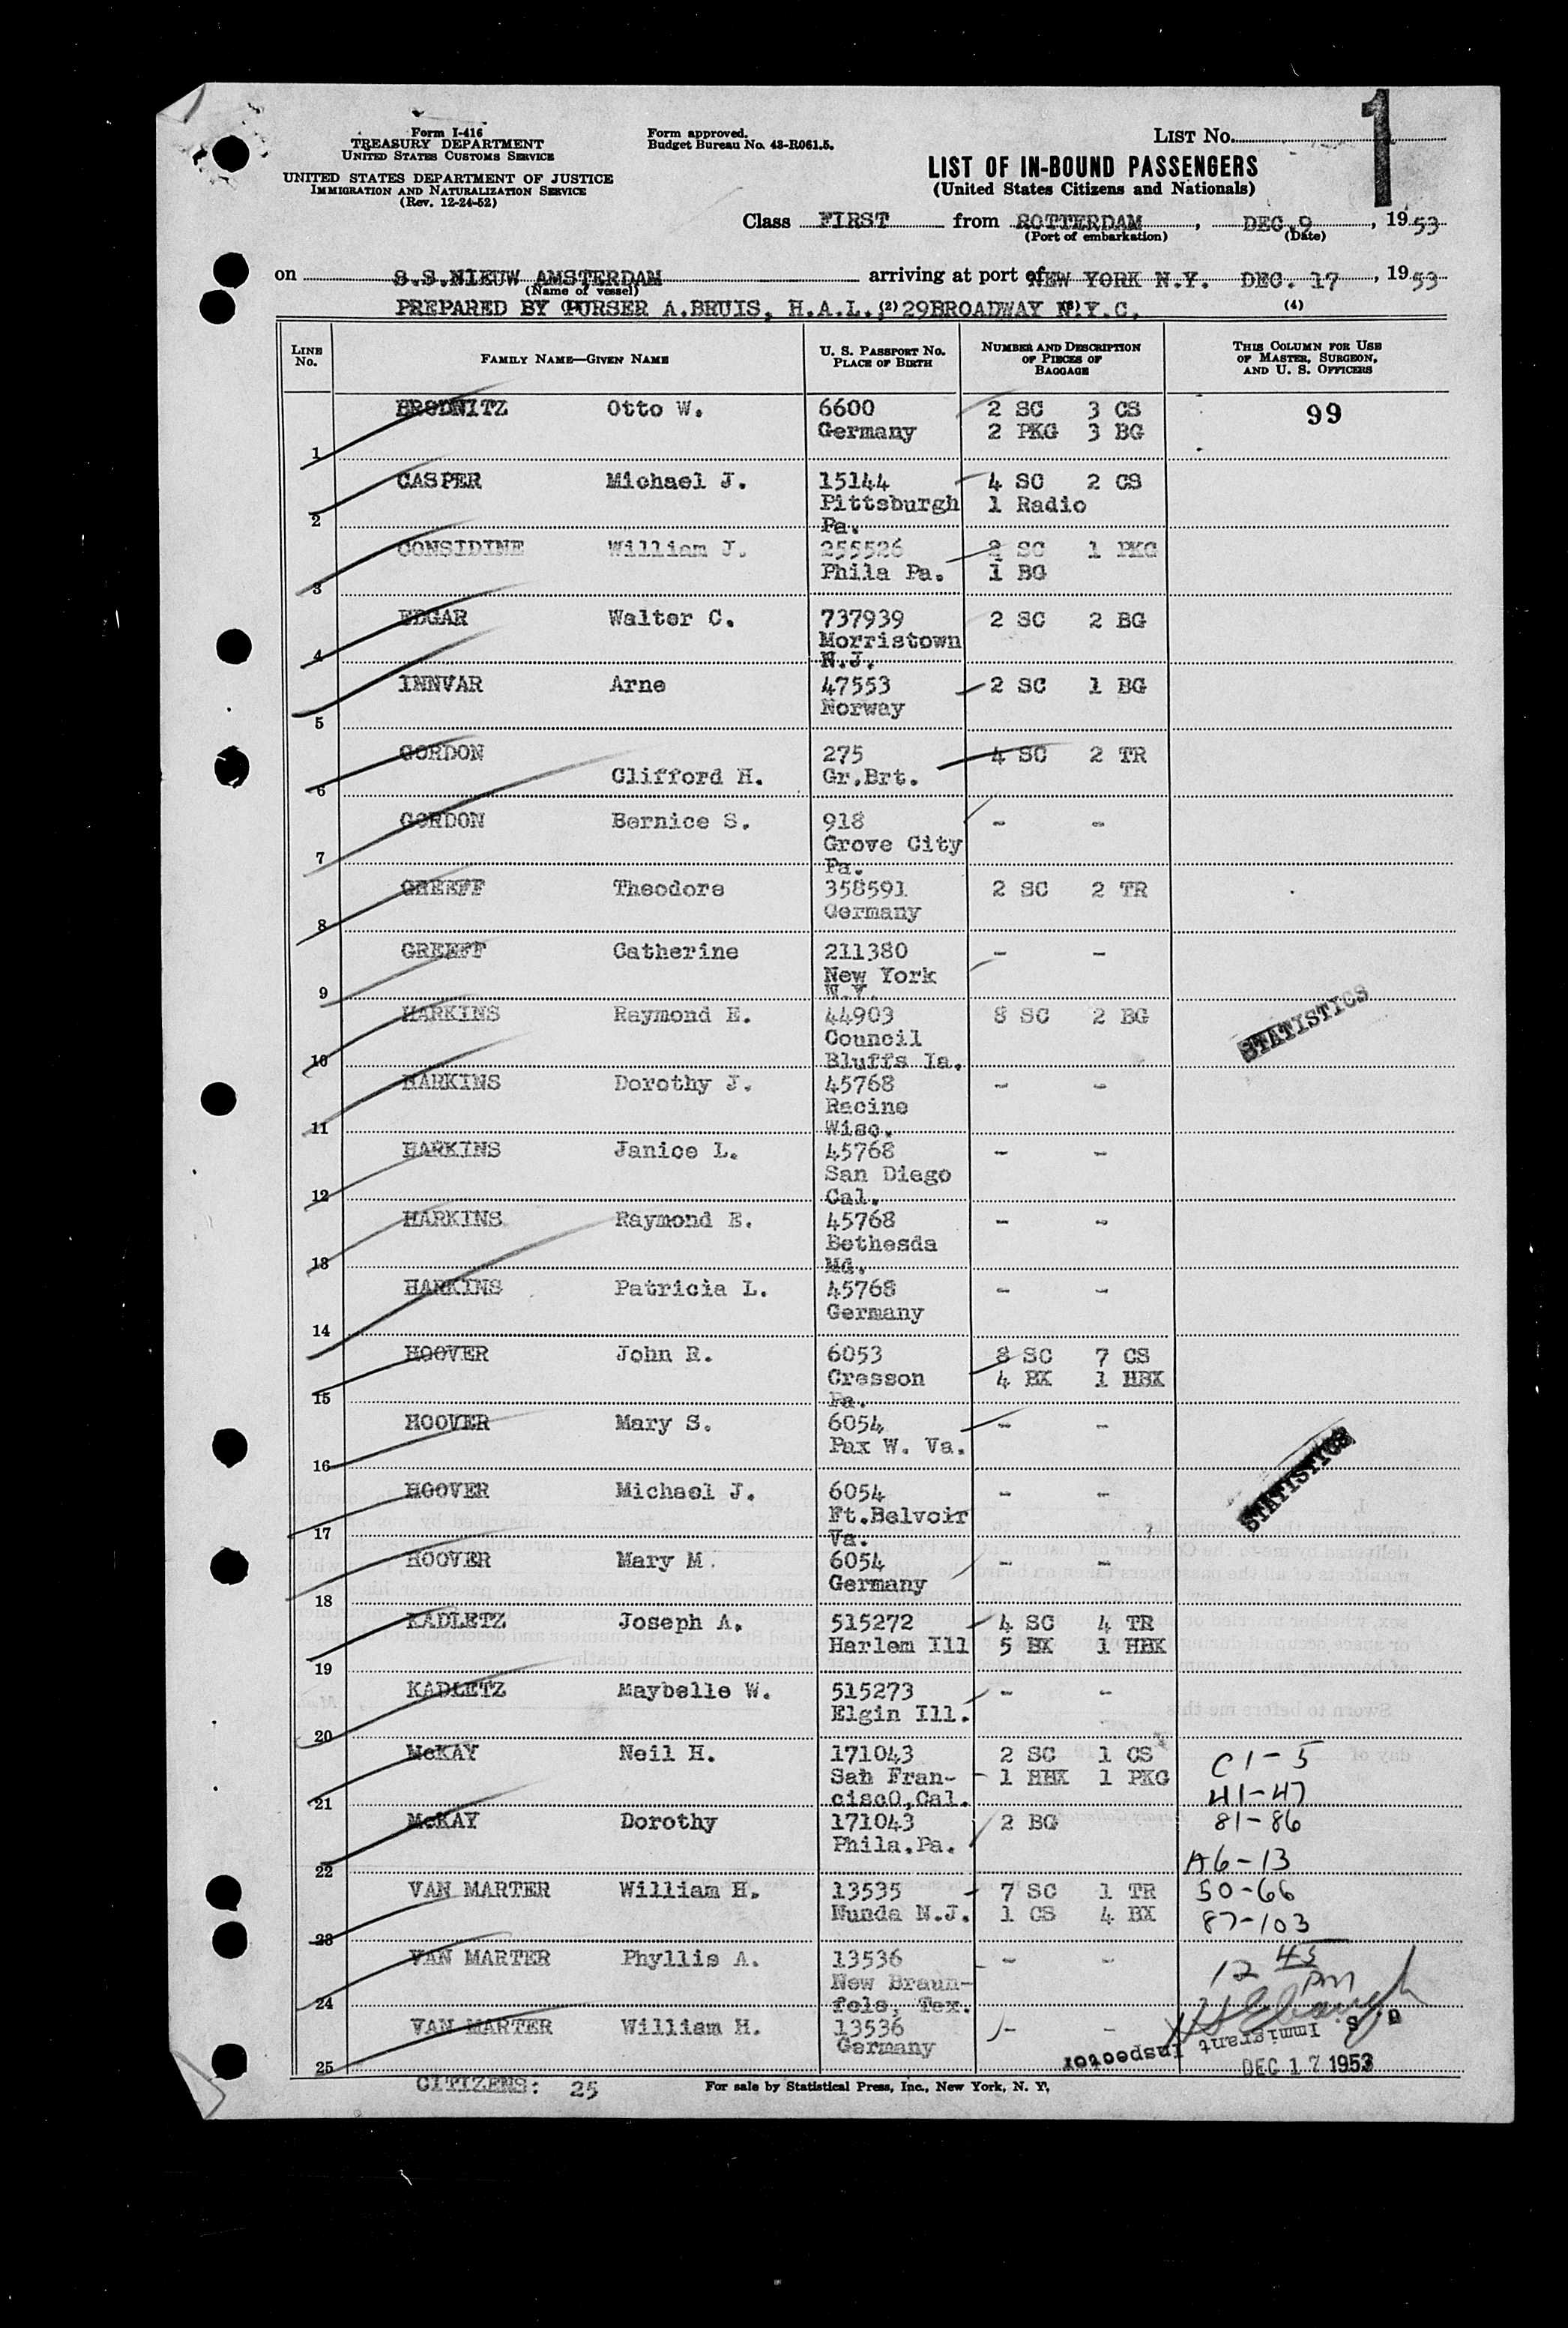 Form I-416
TREASURY DEPARTMENT
UNITED STATES CUSTOMS SERVICE
UNITED STATES DEPARTMENT OF JUSTICE
IMMIGRATION AND NATURALIZATION SERVICE
(Rev. 12-24-52)
Form approved.
Budget Bureau No. 43-R061.5.
LIST NO. 1
LIST OF IN-BOUND PASSENGERS
(United States Citizens and Nationals)
Class FIRST from ROTTERDAM, DEC.9, 1953
(Port of embarkation) (Date)
on S.S.NIEUW AMSTERDAM arriving at port of NEW YORK N.Y. DEC. 17, 1953
(Name of vessel)
PREPARED BY PURSER A.BRUIS, H.A.L. (2) 29BROADWAY N.Y.C. (4)
LINE No. FAMILY NAME—GIVEN NAME U. S. PASSPORT NO. PLACE OF BIRTH NUMBER AND DESCRIPTION OF PIECES OF BAGGAGE THIS COLUMN FOR USE OF MASTER, SURGEON, AND U. S. OFFICERS
BRODNITZ Otto W. 6600 2 SC 3 CS 99
1 Germany 2 PKG 3 BG
CASPER Michael J. 15144 4 SC 2 CS
Pittsburgh 1 Radio
2 Pa.
CONSIDINE William J. 255526 2 SC 1 PKG
3 Phila Pa. 1 BG
EDGAR Walter C. 737939 2 SC 2 BG
Morristown
4 N.J.
INNVAR Arne 47553 2 SC 1 BG
5 Norway
GORDON 275 4 SC 2 TR
6 Clifford H. Gr.Brt.
GORDON Bernice S. 918 - -
Grove City
7 Pa.
GREEFF Theodore 358591 2 SC 2 TR
8 Germany
GREEFF Catherine 211380 - -
New York
9 N.Y.
HARKINS Raymond E. 44903 8 SC 2 BG
Council
10 Bluffs Ia.
STATISTICS
HARKINS Dorothy J. 45768 - -
Racine
11 Wisc.
HARKINS Janice L. 45768 - -
San Diego
12 Cal.
HARKINS Raymond E. 45768 - -
Bethesda
13 Md.
HARKINS Patricia L. 45768 - -
14 Germany
HOOVER John E. 6053 8 SC 7 CS
Cresson 4 BX 1 HBX
15 Pa.
HOOVER Mary S. 6054 - -
16 Pax W. Va.
STATISTICS
HOOVER Michael J. 6054 - -
Ft.Belvoir
17 Va.
HOOVER Mary M. 6054 - -
18 Germany
KADLETZ Joseph A. 515272 4 SC 4 TR
19 Harlem Ill 5 BX 1 HBX
KADLETZ Maybelle W. 515273 - -
20 Elgin Ill.
McKAY Neil H. 171043 2 SC 1 CS C1-5
San Fran- 1 HBX 1 PKG
21 ciscO,Cal. 41-47
McKAY Dorothy 171043 2 BG 81-86
Phila.Pa.
22 A6-13
VAN MARTER William H. 13535 7 SC 1 TR 50-66
23 Nunda N.J. 1 CS 4 BX 87-103
VAN MARTER Phyllis A. 13536 - - 12 45 PM
New Braun-
24 fels, Tex.
VAN MARTER William H. 13536 - -
25 Germany
U. S. Immigrant Inspector
DEC 17 1953
CITIZENS: 25
For sale by Statistical Press, Inc., New York, N. Y.